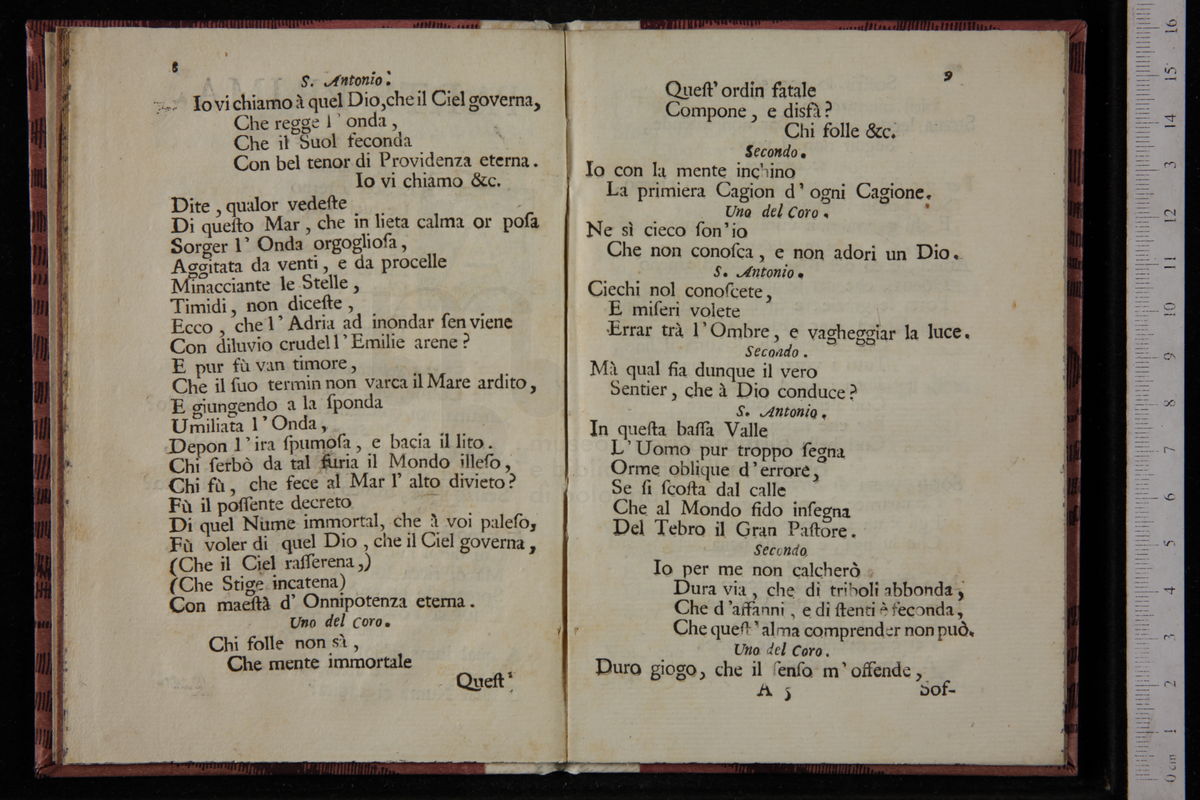 8
S. Antonio.
Io vi chiamo à quel Dio, che il Ciel governa,
Che regge l' onda,
Che il Suol feconda
Con bel tenor di Providenza eterna.
Io vi chiamo &c.
Dite, qualor vedeſte
Di queſto Mar, che in lieta calma or poſa
Sorger l' Onda orgoglioſa,
Aggitata da venti, e da procelle
Minacciante le Stelle,
Timidi, non diceſte,
Ecco, che l' Adria ad inondar ſen viene
Con diluvio crudel l' Emilie arene?
E pur fù van timore,
Che il ſuo termin non varca il Mare ardito,
E giungendo a la ſponda
Umiliata l' Onda,
Depon l' ira ſpumoſa, e bacia il lito.
Chi ſerbò da tal furia il Mondo illeſo,
Chi fù, che fece al Mar l' alto divieto?
Fù il poſſente decreto
Di quel Nume immortal, che à voi paleſo,
Fù voler di quel Dio, che il Ciel governa,
(Che il Ciel raſſerena,)
(Che Stige incatena)
Con maeſtà d' Onnipotenza eterna.
Uno del Coro.
Chi folle non sà,
Che mente immortale
Queſt'
9
Queſt' ordin fatale
Compone, e disfà?
Chi folle &c.
Secondo.
Io con la mente inchino
La primiera Cagion d' ogni Cagione.
Uno del Coro.
Ne sì cieco ſon' io
Che non conoſca, e non adori un Dio.
S. Antonio.
Ciechi nol conoſcete,
E miſeri volete
Errar trà l' Ombre, e vagheggiar la luce.
Secondo.
Mà qual fia dunque il vero
Sentier, che à Dio conduce?
S. Antonio.
In queſta baſſa Valle
L' Uomo pur troppo ſegna
Orme oblique d' errore,
Se ſi ſcoſta dal calle
Che al Mondo fido inſegna
Del Tebro il Gran Paſtore.
Secondo
Io per me non calcherò
Dura via, che di triboli abbonda,
Che d' affanni, e di ſtenti è feconda,
Che queſt' alma comprender non può.
Uno del Coro.
Duro giogo, che il ſenſo m' offende,
A 5
Sof-